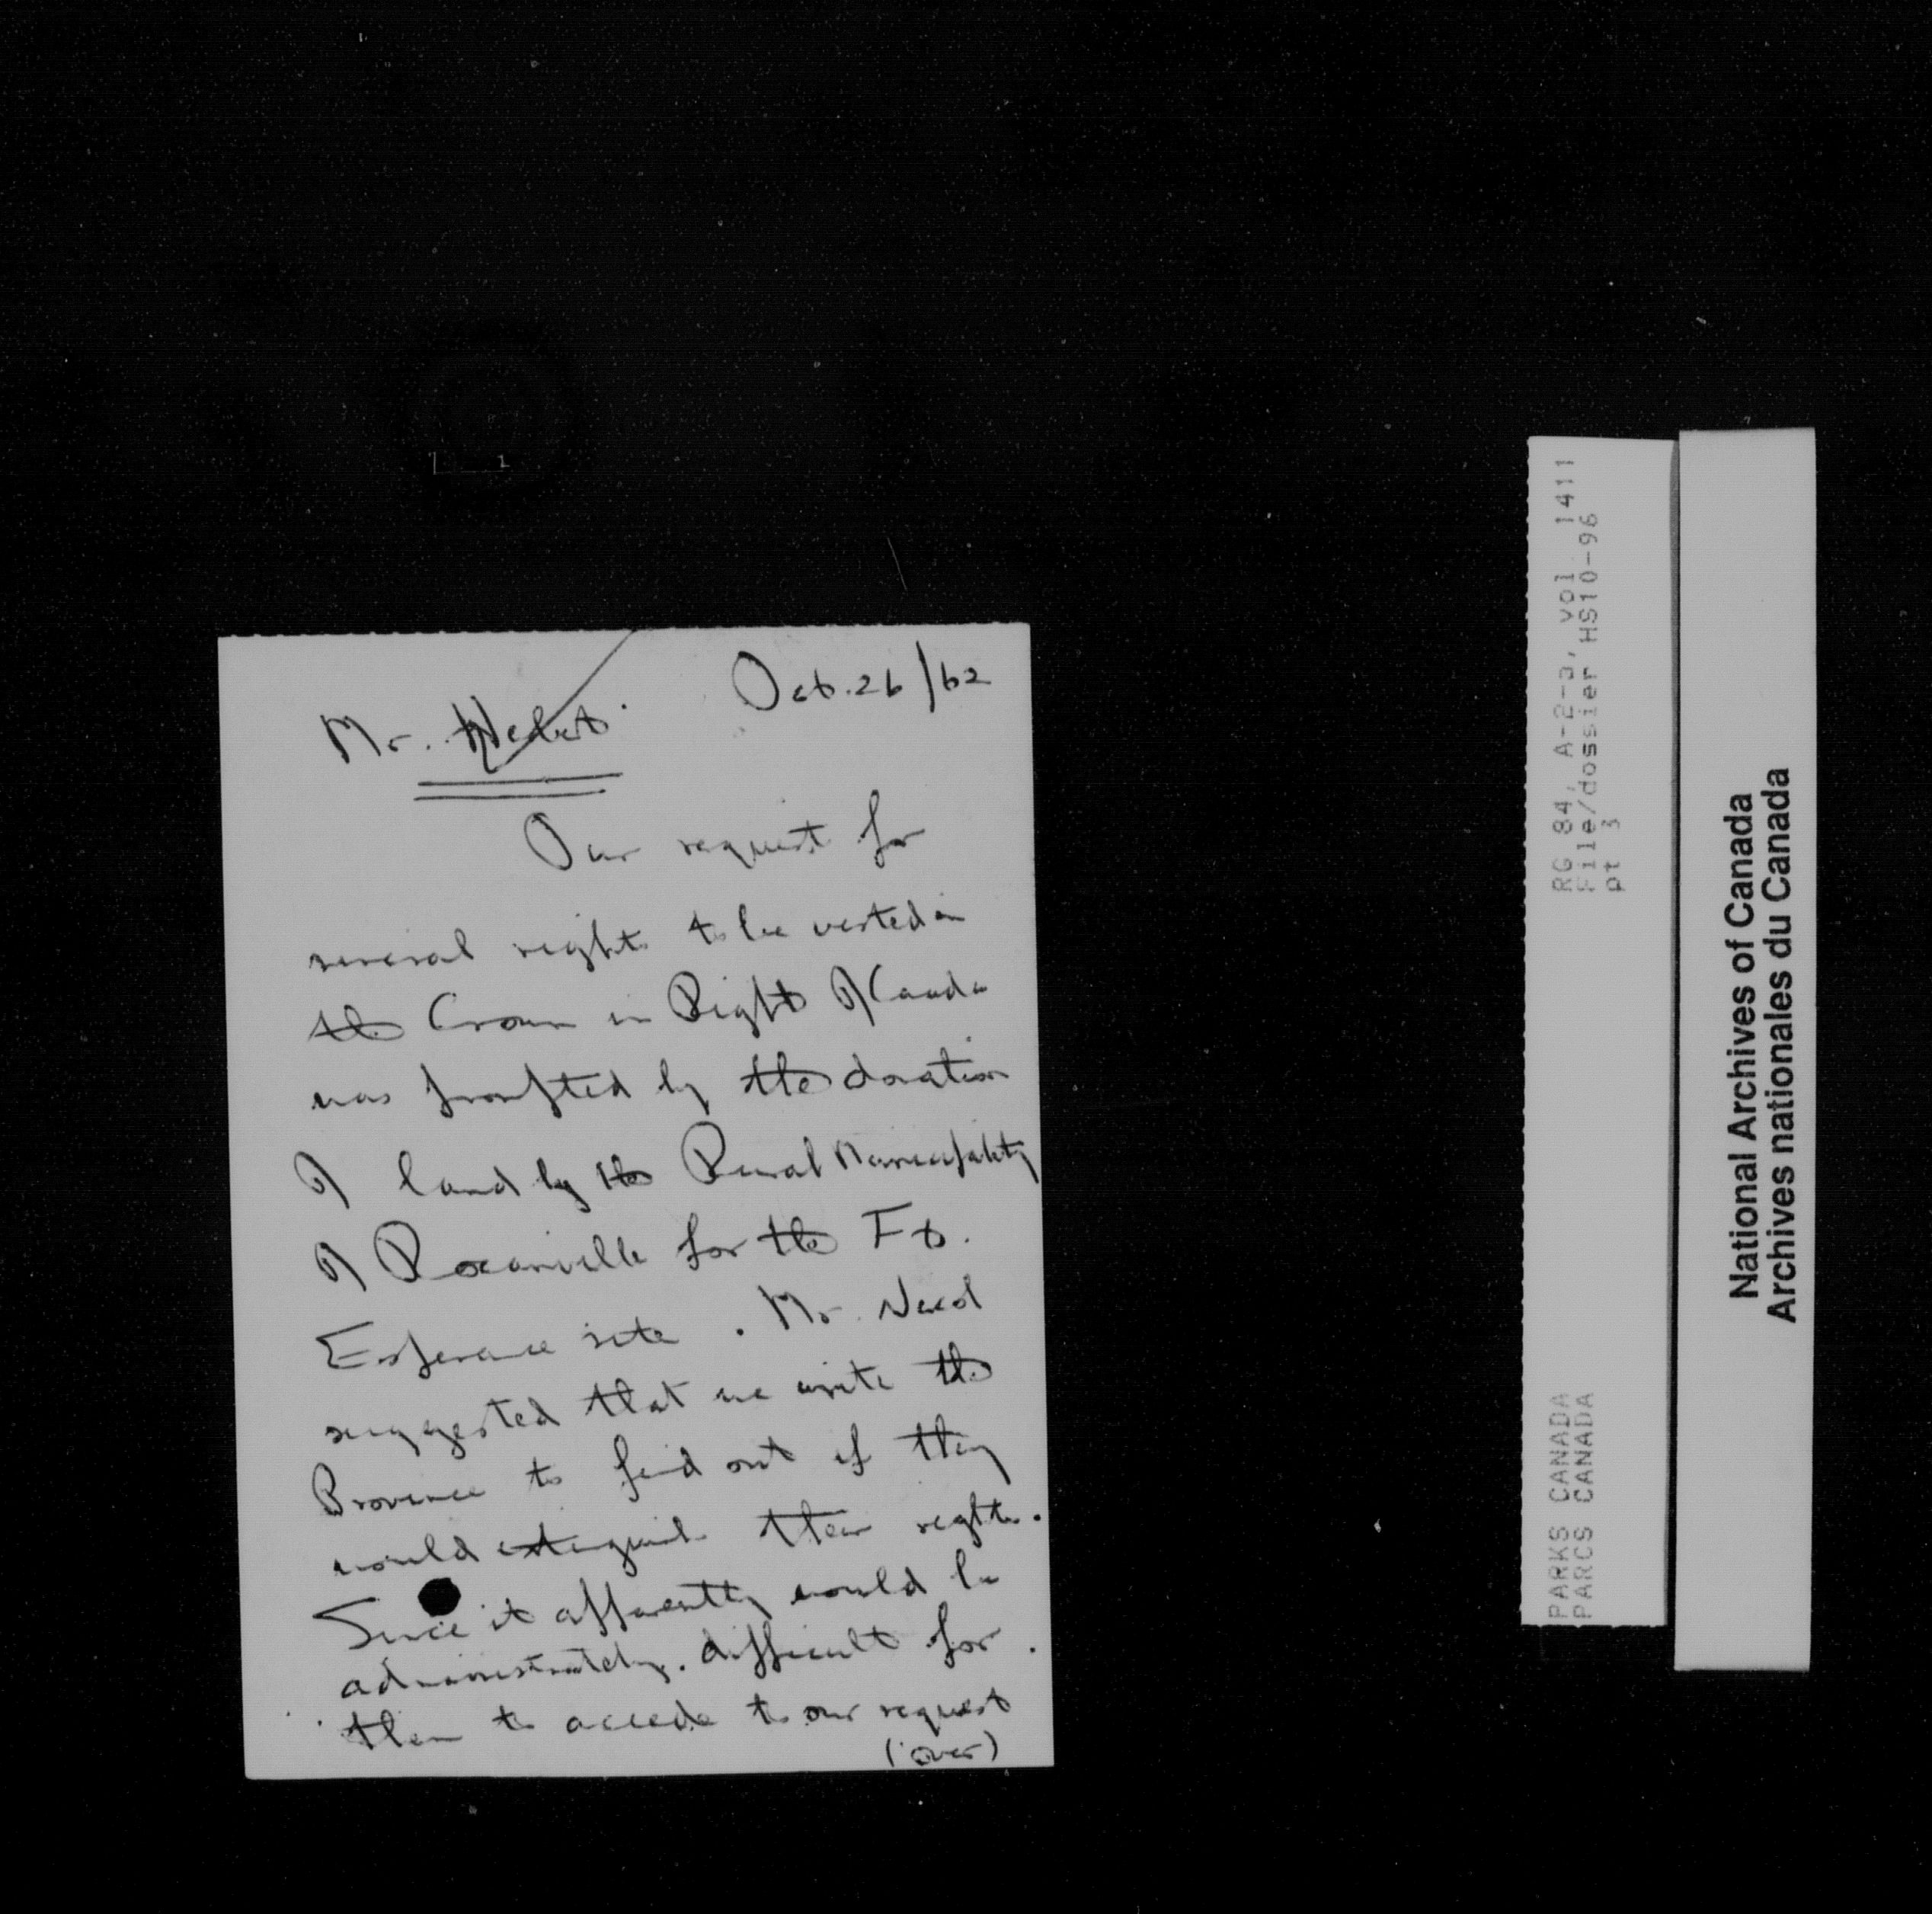 Oct. 26/62
Mr.
Our request for
reversal rights to be vested in
the Crown in Right of Canada
was prompted by the donation
of land by the Rural Municipality
of Rocanville for the Ft.
Esperance site. Mr. Need
suggested that we write the
Province to find out if they
would extinguish their rights.
Since it apparently would be
administratively difficult for
them to accede to our request
(over)
RG 84, A-2-a, vol 1411
File/dossier HS10-96
pt 3
PARKS CANADA
PARCS CANADA
National Archives of Canada
Archives nationales du Canada